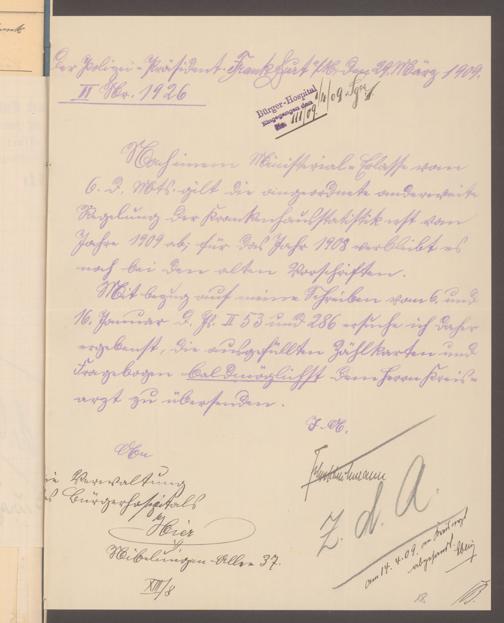 Der Polizei-Präsident. Frankfurt a/M. den 29. März 1909.
II Nr. 1926
Bürger-Hospital
Eingegangen den 1/4 09.
No. III/09
Nach einem Ministerial-Erlasse vom
6. d. Mts. gilt die angeordnete anderweite
Regelung der Krankenhausstatistik erst vom
Jahre 1909 ab; für das Jahr 1908 verbleibt es
noch bei den alten Vorschriften.
Mit bezug auf meine Schreiben vom 6. und
16. Januar d. Js. II 53 und 286 ersuche ich daher
ergebenst, die ausgefüllten Zählkarten und
Fragebogen baldmöglichst dem Herrn Kreis-
arzt zu übersenden.
J. A.
An
ie Verwaltung
s Bürgerhospitals
Hier
Nibelungen-Allee 37.
XIII/8
Z. d. A.
am 14. 4. 09. an Kreisarzt
abgesandt.